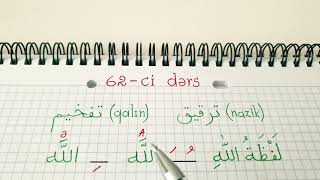 62-ci dərs
تفخيم (qalın) ترقيق (nazik)
لَفْظَةُ اللّٰهِ ـُـَ اللَّه ـِ اللَّه